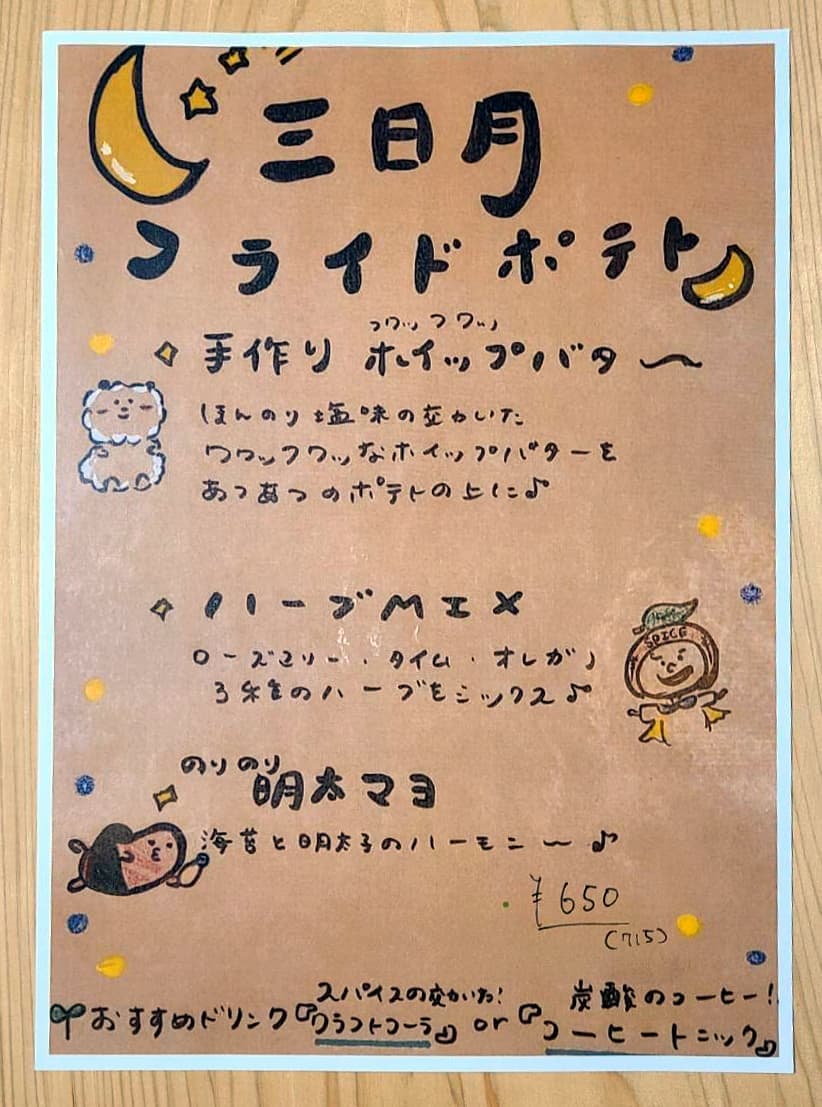 三日月
フライドポテト
フワッフワッ
手作り ホイップバター
ほんのり塩味の効いた
フワッフワッなホイップバターを
あつあつのポテトの上に♪
ハーブMIX
ローズマリー・タイム・オレガノ
3種のハーブをミックス♪
SPICE
のりのり
明太マヨ
海苔と明太子のハーモニー♪
¥650
(715)
スパイスの効いた! 炭酸のコーヒー!
おすすめドリンク『クラフトコーラ』or『コーヒートニック』